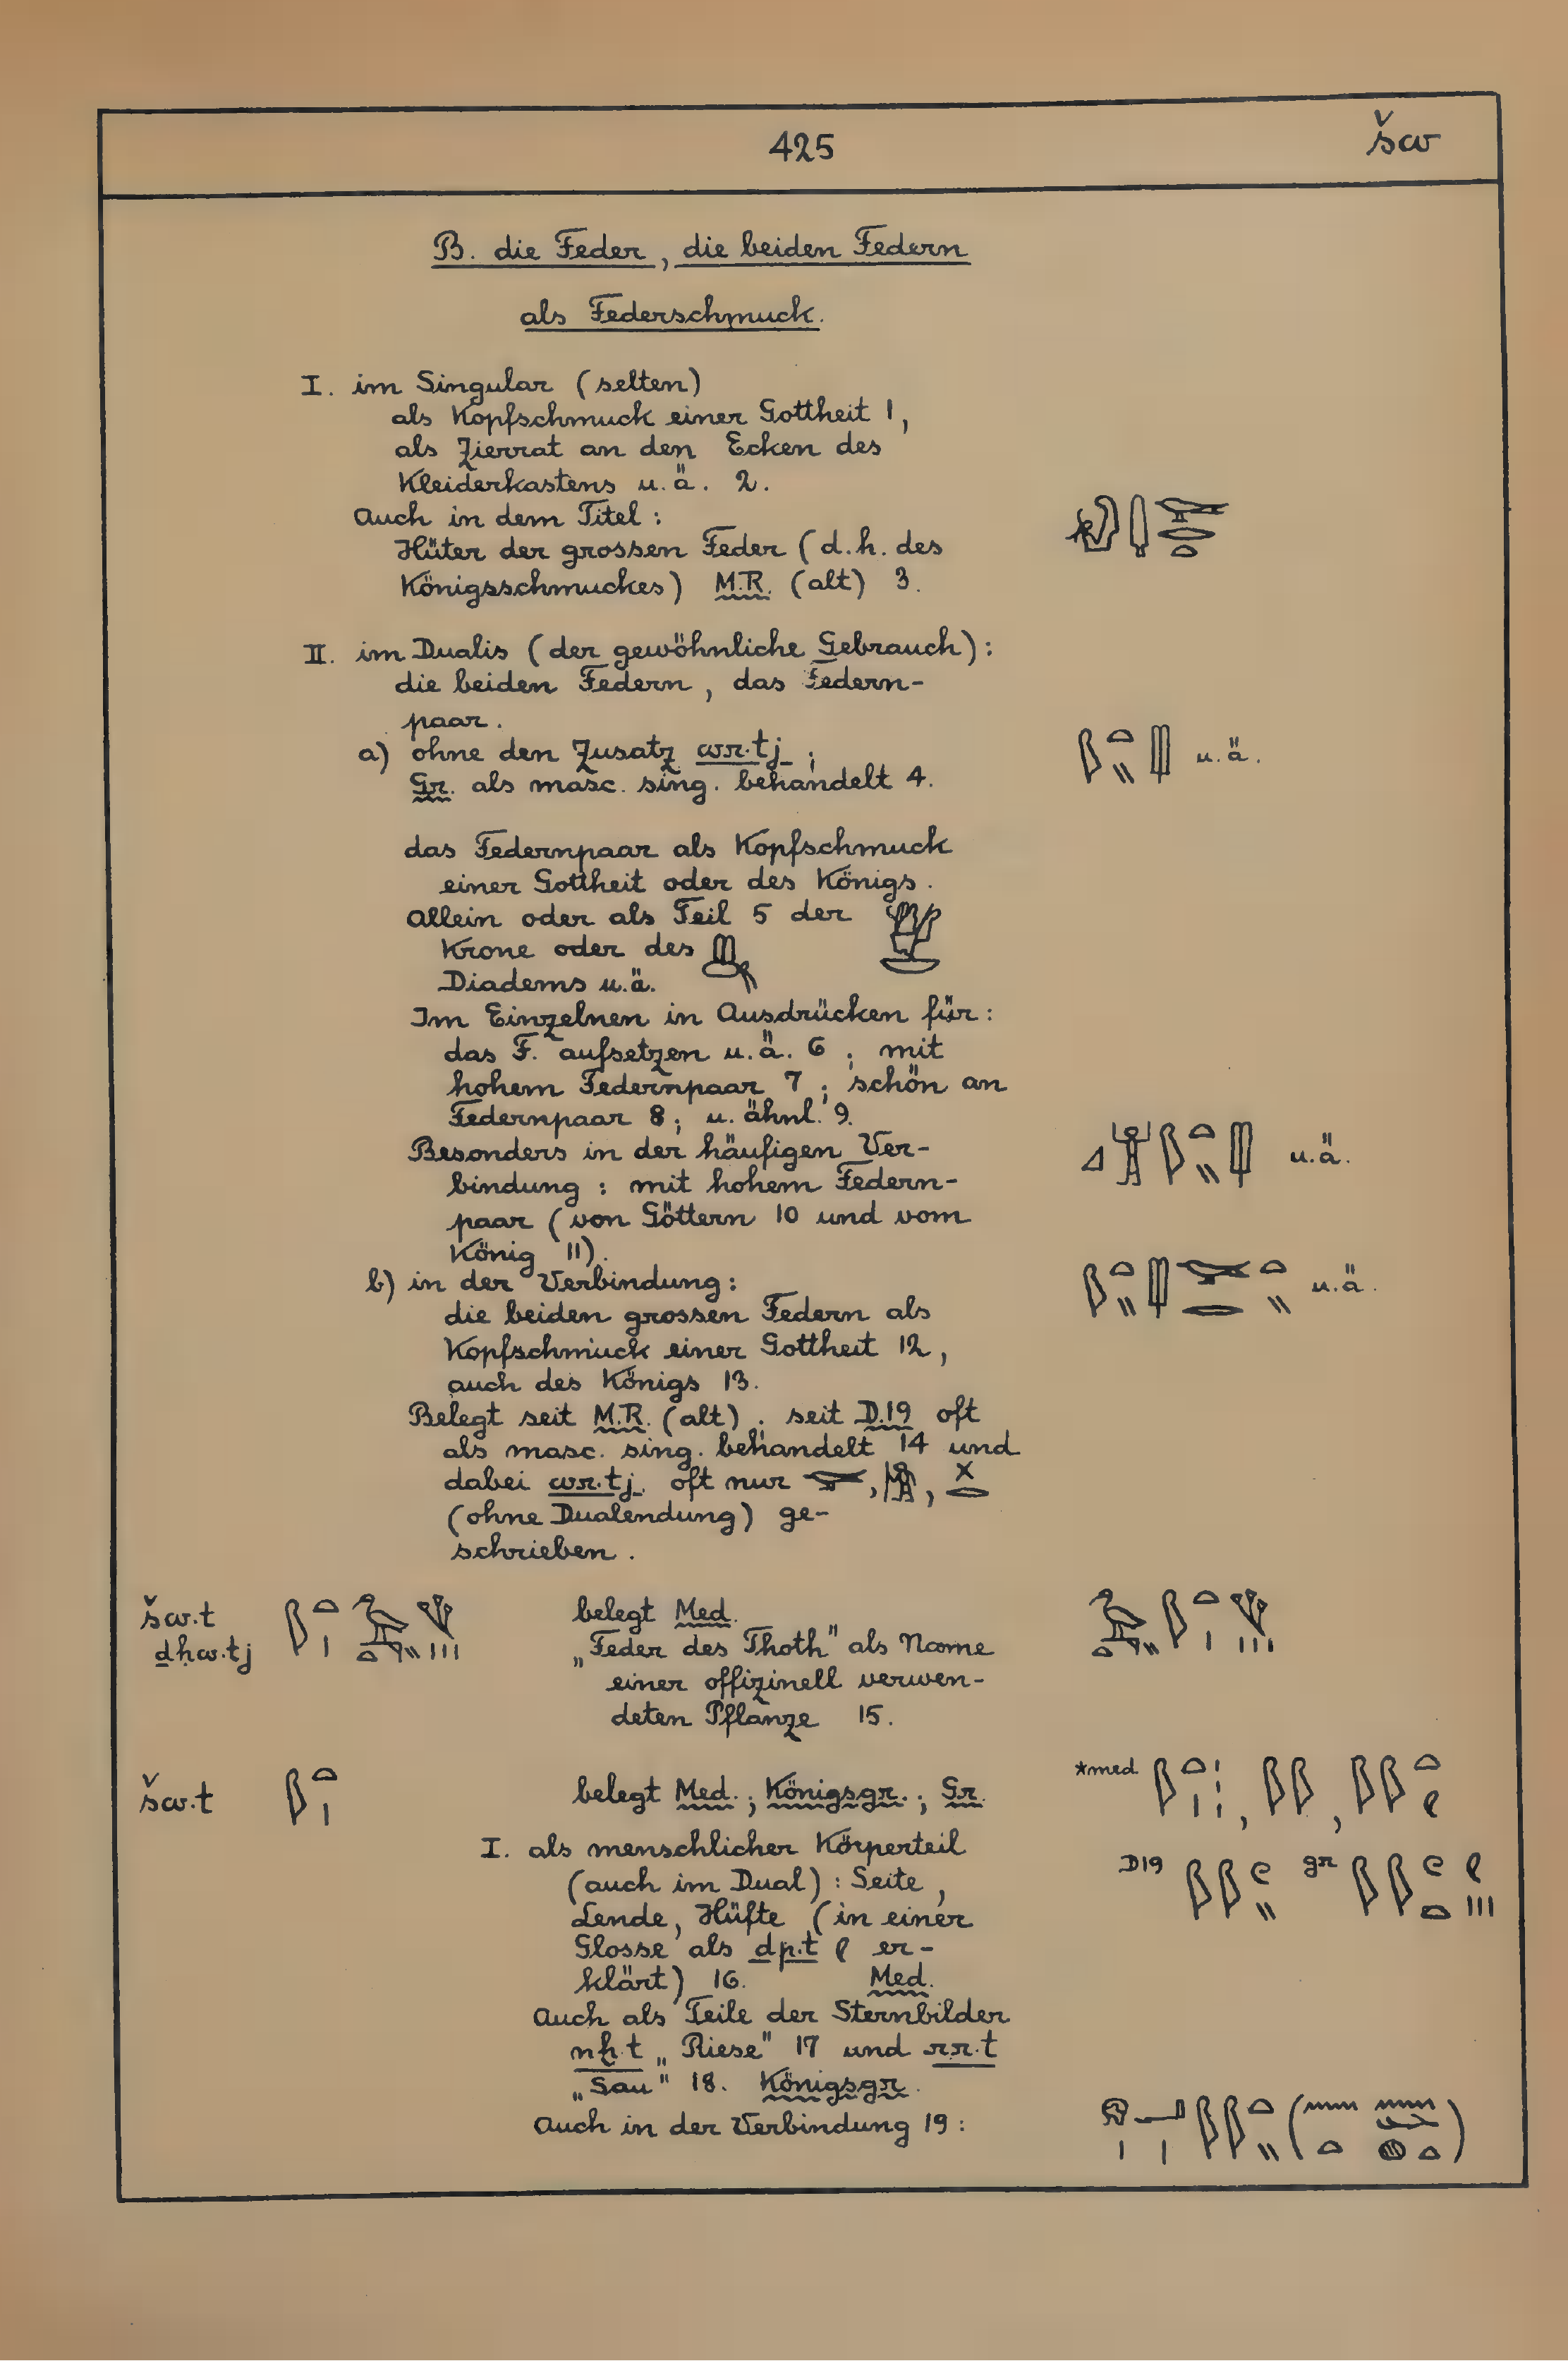 425 šw
B. die Feder, die beiden Federn
als Federschmuck.
I. im Singular (selten)
als Kopfschmuck einer Gottheit 1,
als Zierrat an den Ecken des
Kleiderkastens u.ä. 2.
Auch in dem Titel:
Hüter der grossen Feder (d.h. des
Königsschmuckes) M.R. (alt) 3.
II. im Dualis (der gewöhnliche Gebrauch):
die beiden Federn, das Federn-
paar.
a) ohne den Zusatz wr.tj; u.ä.
Gr. als masc. sing. behandelt 4.
das Federnpaar als Kopfschmuck
einer Gottheit oder des Königs.
Allein oder als Teil 5 der
Krone oder des
Diadems u.ä.
Im Einzelnen in Ausdrücken für:
das F. aufsetzen u.ä. 6; mit
hohem Federnpaar 7; schön an
Federnpaar 8; u. ähnl. 9.
Besonders in der häufigen Ver- u.ä.
bindung: mit hohem Federn-
paar (von Göttern 10 und vom
König 11).
b) in der Verbindung: u.ä.
die beiden grossen Federn als
Kopfschmuck einer Gottheit 12,
auch des Königs 13.
Belegt seit M.R. (alt); seit D.19 oft
als masc. sing. behandelt 14 und
dabei wr.tj oft nur
(ohne Dualendung) ge-
schrieben.
šw.t belegt Med.
ḏḥw.tj „Feder des Thoth" als Name
einer offizinell verwen-
deten Pflanze 15.
šw.t belegt Med.; Königsgr.; Gr. *med
I. als menschlicher Körperteil
(auch im Dual): Seite, D19 gr
Lende, Hüfte (in einer
Glosse als dp.t er-
klärt) 16. Med.
Auch als Teile der Sternbilder
nḫt „Riese" 17 und rr.t
„Sau" 18. Königsgr.
Auch in der Verbindung 19: